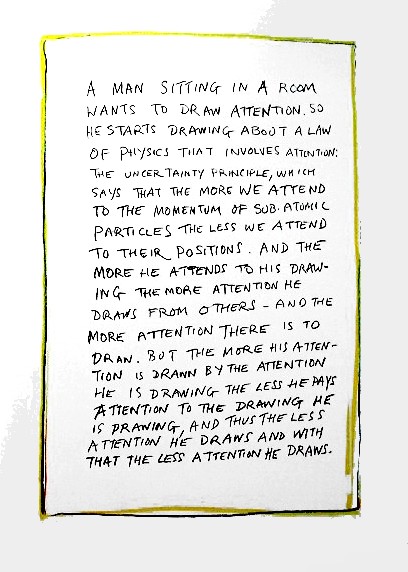 A MAN SITTING IN A ROOM
WANTS TO DRAW ATTENTION. SO
HE STARTS DRAWING ABOUT A LAW
OF PHYSICS THAT INVOLVES ATTENTION:
THE UNCERTAINTY PRINCIPLE, WHICH
SAYS THAT THE MORE WE ATTEND
TO THE MOMENTUM OF SUB-ATOMIC
PARTICLES THE LESS WE ATTEND
TO THEIR POSITIONS. AND THE
MORE HE ATTENDS TO HIS DRAW-
ING THE MORE ATTENTION HE
DRAWS FROM OTHERS - AND THE
MORE ATTENTION THERE IS TO
DRAW. BUT THE MORE HIS ATTEN-
TION IS DRAWN BY THE ATTENTION
HE IS DRAWING THE LESS HE PAYS
ATTENTION TO THE DRAWING HE
IS DRAWING, AND THUS THE LESS
ATTENTION HE DRAWS AND WITH
THAT THE LESS ATTENTION HE DRAWS.